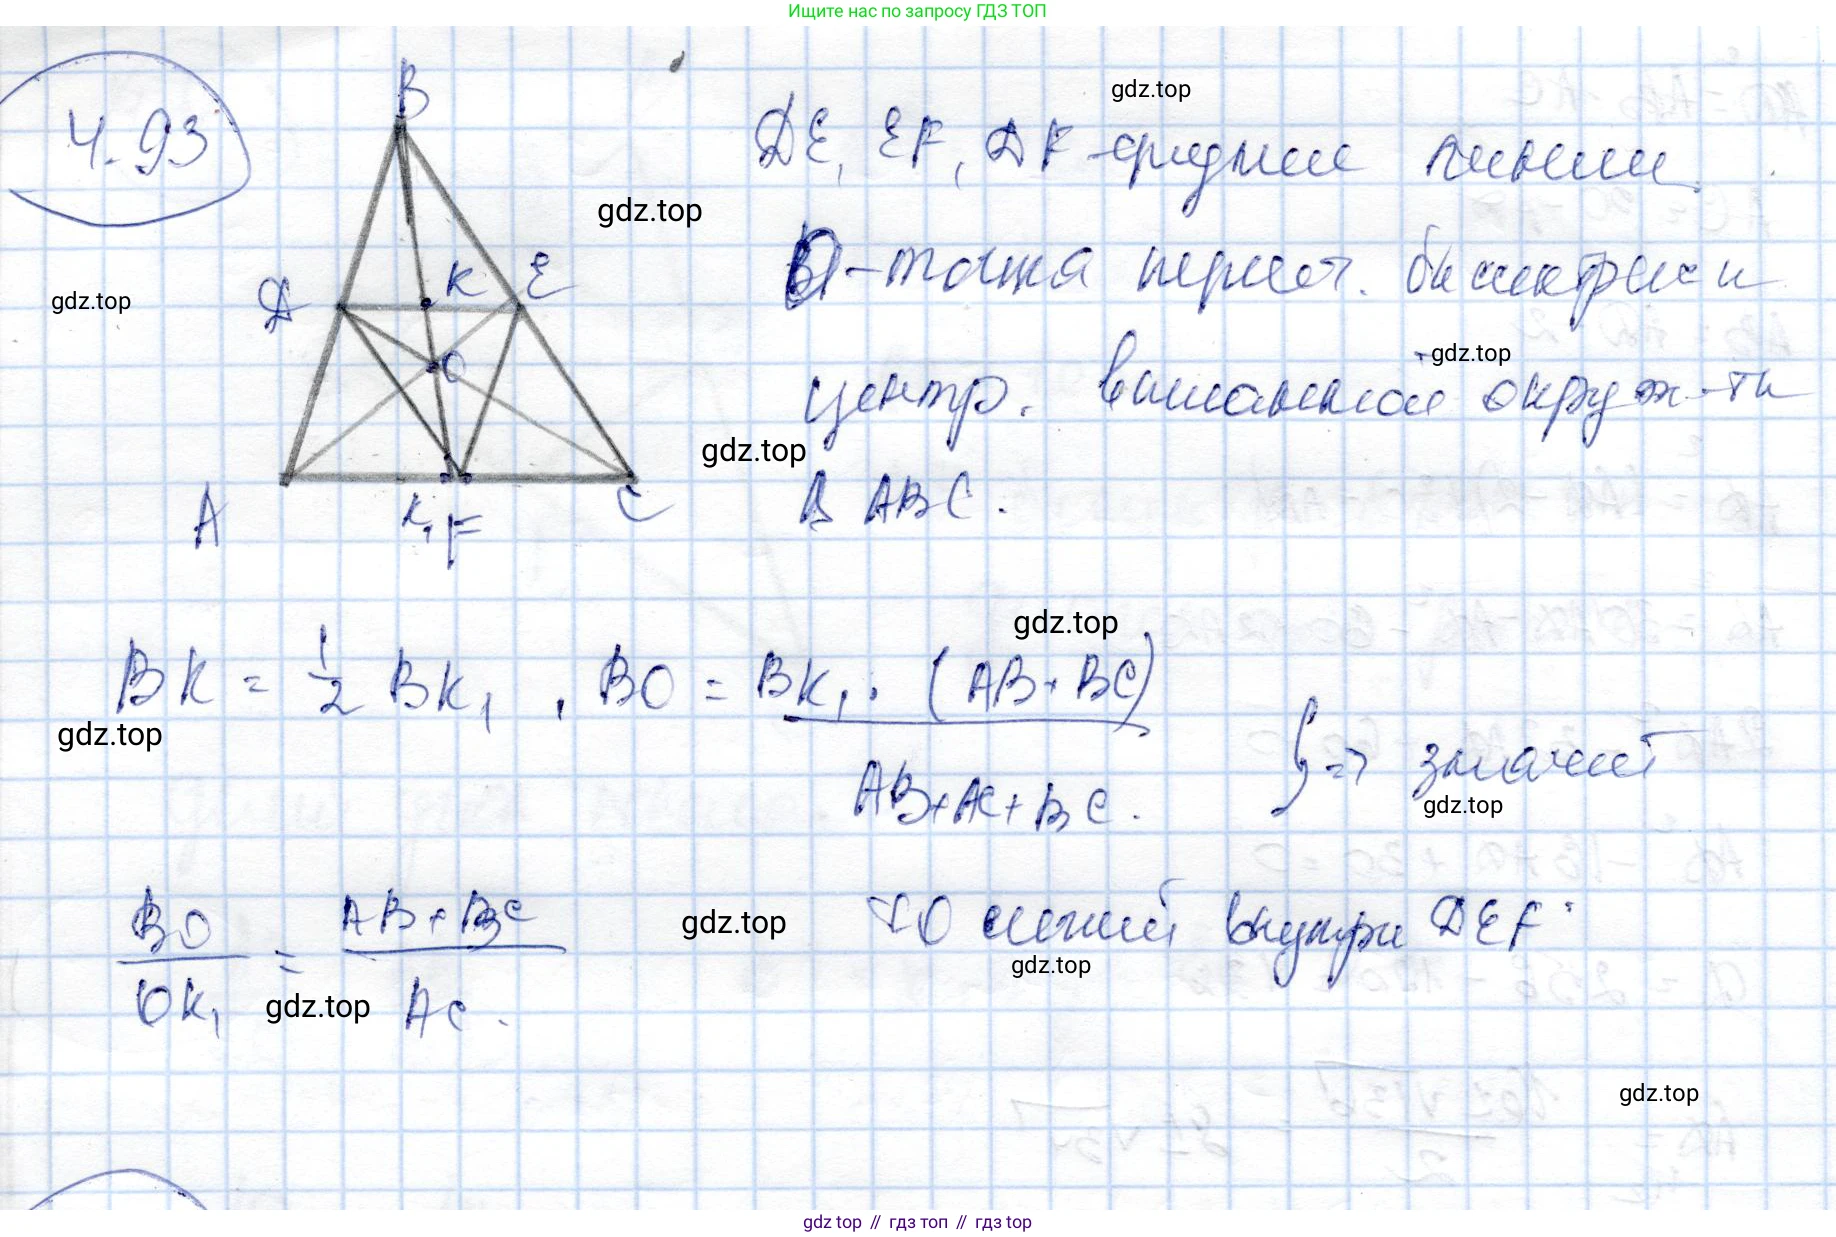 Ищите нас по запросу ГДЗ ТОП
4.93
B
D K E
O
A K₁ F C
DE, EF, DF - средние линии
O - точка перес. биссектрис и
центр. вписанной окруж-ти
в ABC.
gdz.top
gdz.top
gdz.top
gdz.top
gdz.top
gdz.top
BK = 1/2 BK₁, BO = BK₁ · (AB + BC) / AB + AC + BC. } => значит
gdz.top
gdz.top
BO / OK₁ = AB + BC / AC.
т O лежит внутри DEF.
gdz.top
gdz.top
gdz.top
gdz.top
gdz top // гдз топ // гдз top